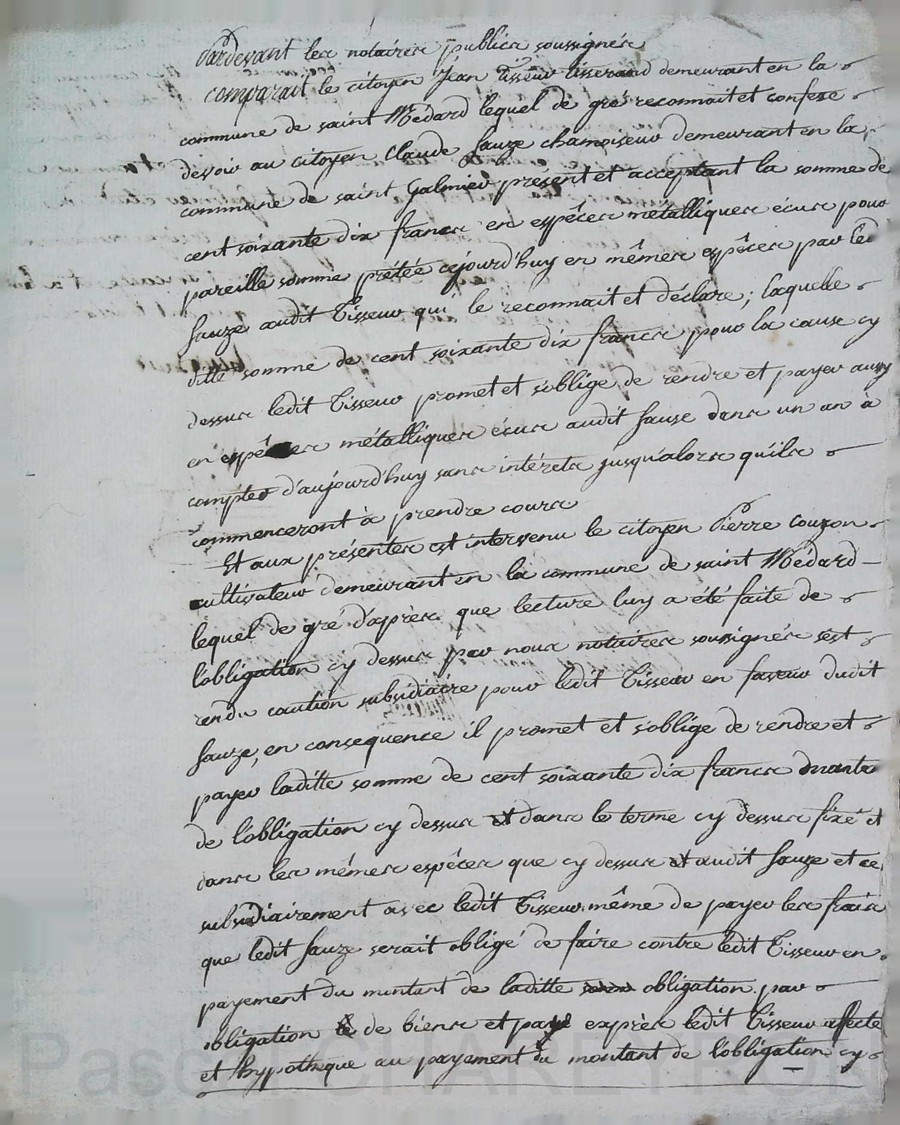 Pardevant les notaires publics soussignés
comparait le citoyen Jean Tisseur tisserand demeurant en la
commune de saint Médard lequel de gré reconnait et confesse
devoir au citoyen Claude Sauze chamoiseur demeurant en la
commune de saint Galmier présent et acceptant la somme de
cent soixante dix francs en espêces métalliques écus pour
pareille somme prétée cejourd'huy en mêmes espêces par led
Sauze audit Tisseur qui le reconnait et déclare; laquelle
ditte somme de cent soixante dix francs pour la cause cy
dessus ledit Tisseur promet et s'oblige de rendre et payer aussy
en espêces métalliques écus audit Sauze dans un an à
compter d'aujourd'huy sans intérets jusqu'alors qu'ils
commenceront à prendre cours
Et aux présentes est intervenu le citoyen Pierre Couzon
cultivateur demeurant en la commune de saint Médard
lequel de gré d'après que lecture luy a été faite de
l'obligation cy dessus par nous notaires soussignés s'est
rendu caution subsidiaire pour ledit Tisseur en faveur dudit
Sauze, en consequence il promet et s'oblige de rendre et
payer laditte somme de cent soixante dix francs
de l'obligation cy dessus et dans le terme cy dessus fixé et
dans les mêmes espêces que cy dessus et audit Sauze et ce
subsidiairement avec ledit Tisseur même de payer les frais
que ledit Sauze serait obligé de faire contre ledit Tisseur en
payement du montant de laditte obligation par
obligation de biens et exprès ledit Tisseur affecte
et hypothèque au payement du montant de l'obligation cy
Pascal CHAREYRON